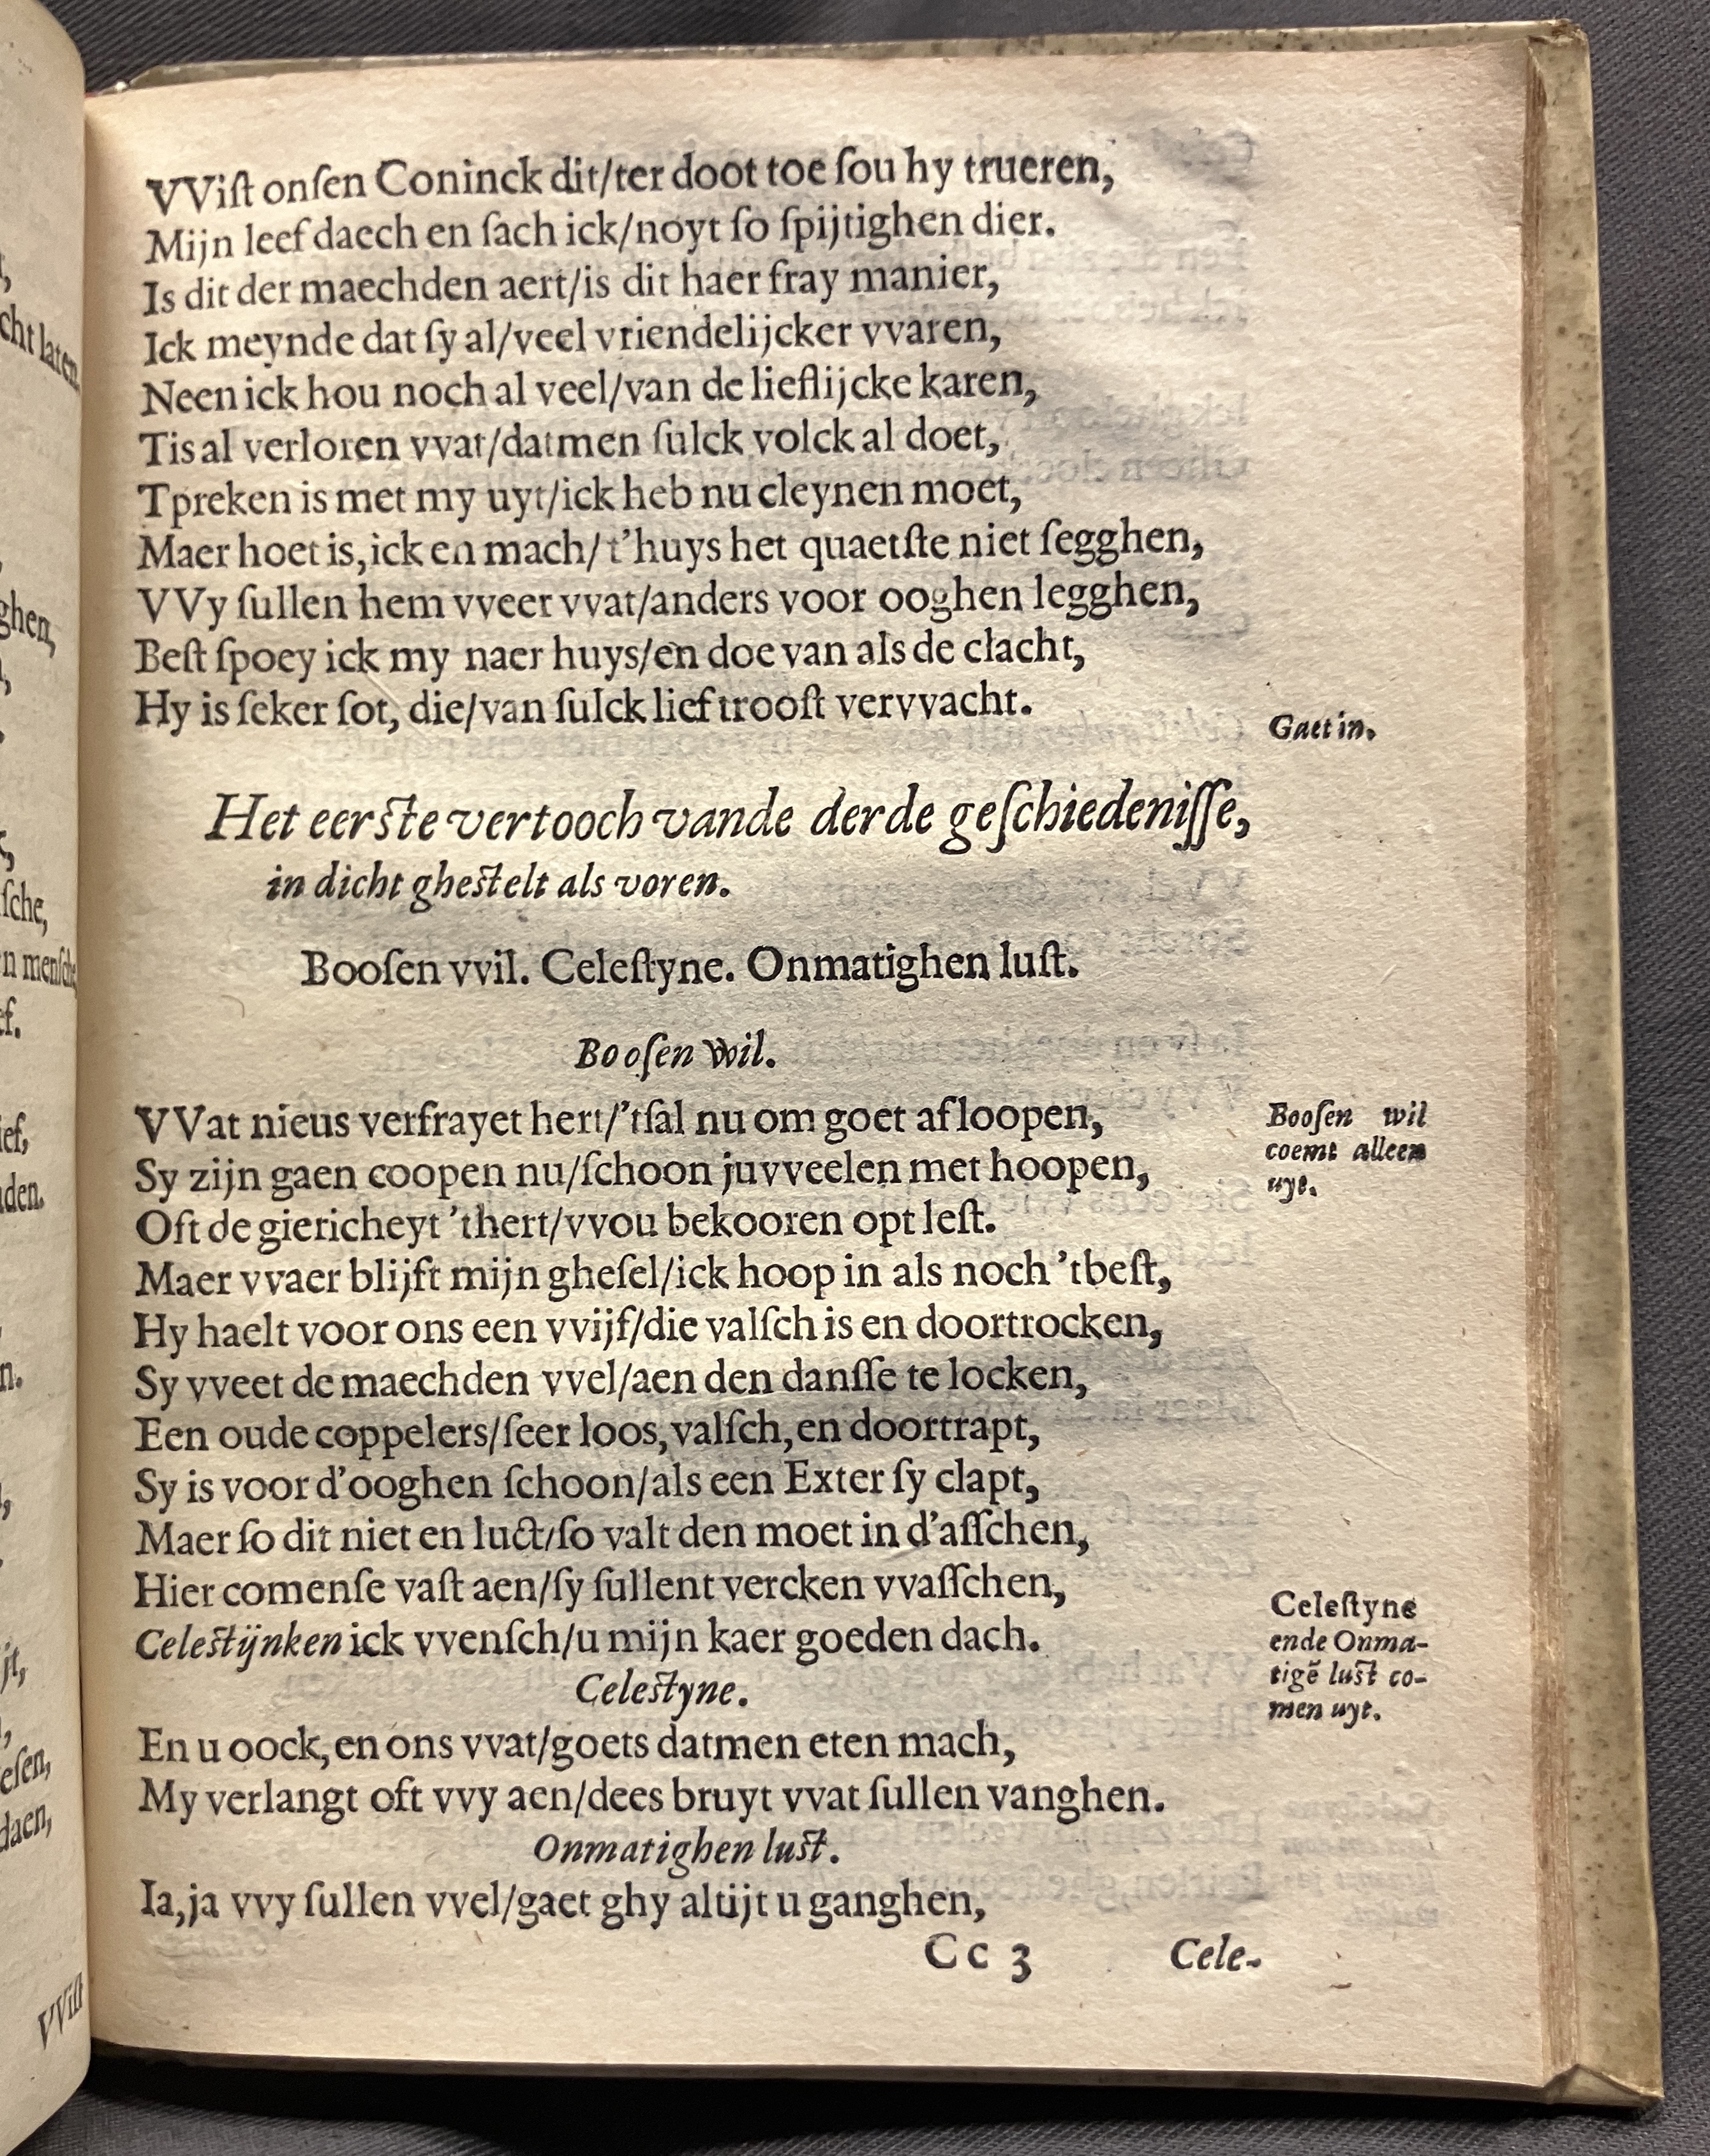 VViſt onſen Coninck dit/ter doot toe ſou hy trueren,
Mijn leef daech en ſach ick/noyt ſo ſpijtighen dier.
Is dit der maechden aert/is dit haer fray manier,
Ick meynde dat ſy al/veel vriendelijcker vvaren,
Neen ick hou noch al veel/van de lieflijcke karen,
Tis al verloren vvat/datmen ſulck volck al doet,
Tpreken is met my uyt/ick heb nu cleynen moet,
Maer hoet is, ick en mach/t'huys het quaetſte niet ſegghen,
VVy ſullen hem vveer vvat/anders voor ooghen legghen,
Beſt ſpoey ick my naer huys/en doe van als de clacht,
Hy is ſeker ſot, die/van ſulck lief trooſt vervvacht.
Gaet in.
Het eerſte vertooch vande derde geſchiedeniſſe,
in dicht gheſtelt als voren.
Booſen vvil. Celeſtyne. Onmatighen luſt.
Booſen wil.
VVat nieus verfrayet hert/'tſal nu om goet afloopen,
Booſen wil
coemt alleen
uyt.
Sy zijn gaen coopen nu/ſchoon juvveelen met hoopen,
Oft de giericheyt 'thert/vvou bekooren opt leſt.
Maer vvaer blijft mijn gheſel/ick hoop in als noch 'tbeſt,
Hy haelt voor ons een vvijf/die valſch is en doortrocken,
Sy vveet de maechden vvel/aen den danſſe te locken,
Een oude coppelers/ſeer loos, valſch, en doortrapt,
Sy is voor d'ooghen ſchoon/als een Exter ſy clapt,
Maer ſo dit niet en luct/ſo valt den moet in d'aſſchen,
Hier comenſe vaſt aen/ſy ſullent vercken vvaſſchen,
Celeſtijnken ick vvenſch/u mijn kaer goeden dach.
Celeſtyne
ende Onma-
tigē luſt co-
men uyt.
Celeſtyne.
En u oock, en ons vvat/goets datmen eten mach,
My verlangt oft vvy aen/dees bruyt vvat ſullen vanghen.
Onmatighen luſt.
Ia, ja vvy ſullen vvel/gaet ghy altijt u ganghen,
Cc 3
Cele-